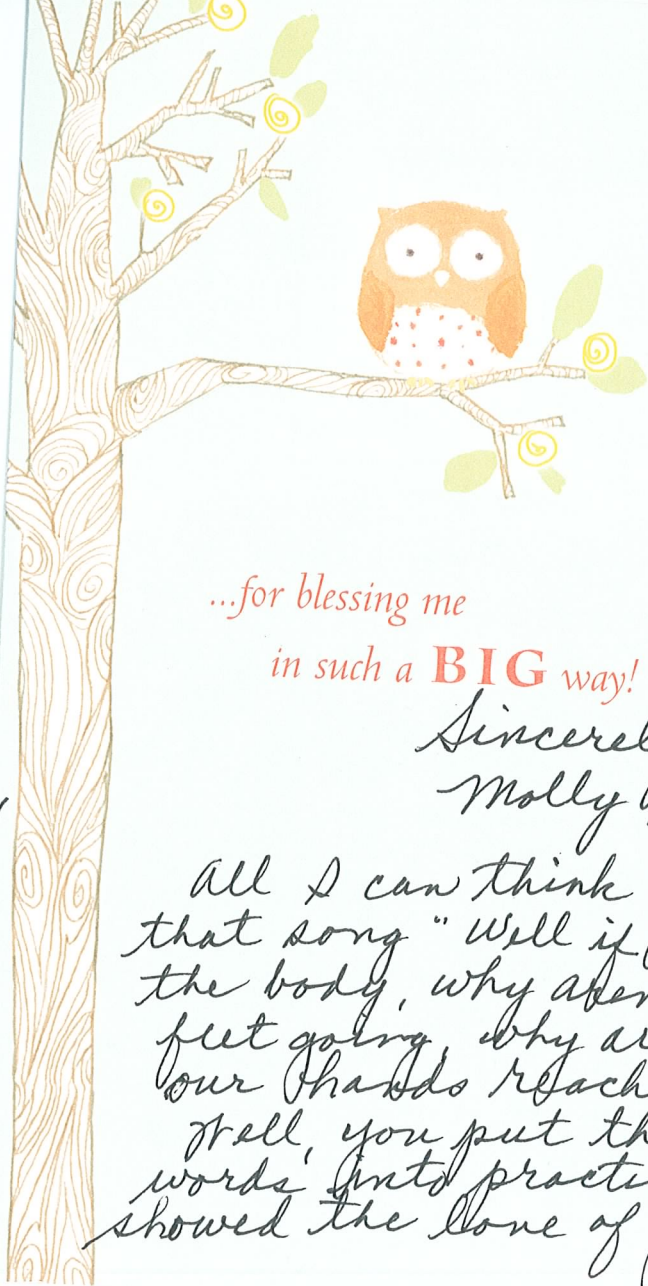 ...for blessing me
in such a BIG way!
Sincerel
Molly
All I can think
that song " Well if
the body, why aren
feet going, why ar
our hands reach
Well, you put th
words into practi
showed the love of